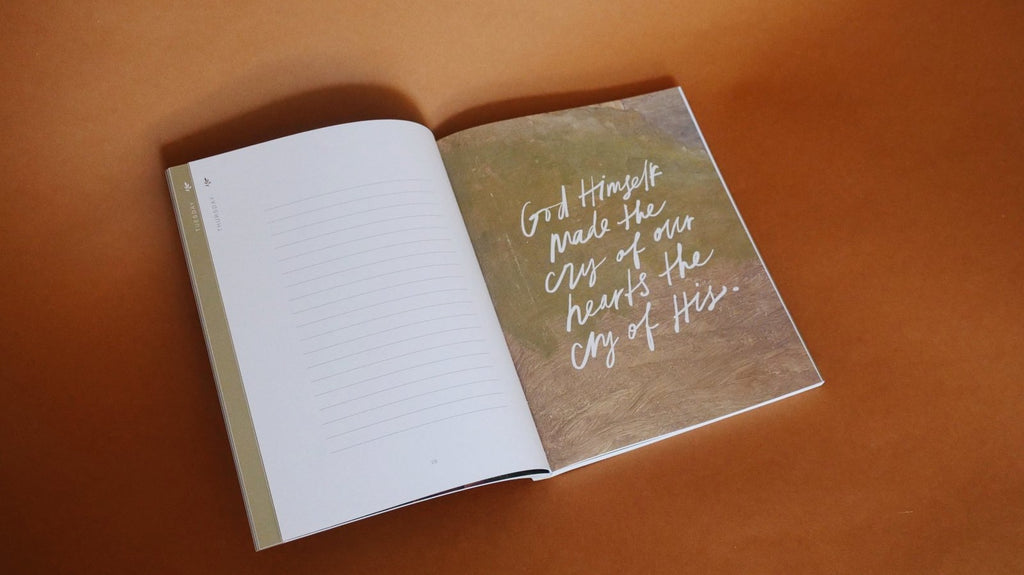 TUESDAY
THURSDAY
God Himself
made the
cry of our
hearts the
cry of His.